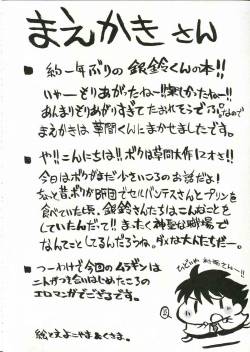 まえかき さん
■ 約一年ぶりの 銀鈴くんの本!!
いやーもりあがたねー!!楽しかったねー!!
あんまりもりあがりすぎて たおれそうでぷ。なので
まえがきは、草間くんにまかせましたです。
■ や!!こんにちは!!ボクは草間大作12才さ!!
今日はボクがまだ少さいころのお話だよ!
ちょっと昔、ボクが師団でセルバンテスさんとプリンを
食べていた頃、銀鈴さんたちはこんなことを
していたんだって!!まったく神聖な職場で
なんてことしてるんだろうね。ダメな大人たちだー。
■ つーわけで今回のムラギンは
二人がつき合いはじめたころの
エロマンがでござるです。
絵と文